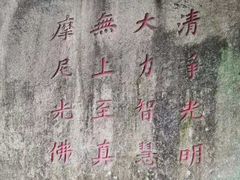 清净光明
大力智慧
無上至真
摩尼光佛